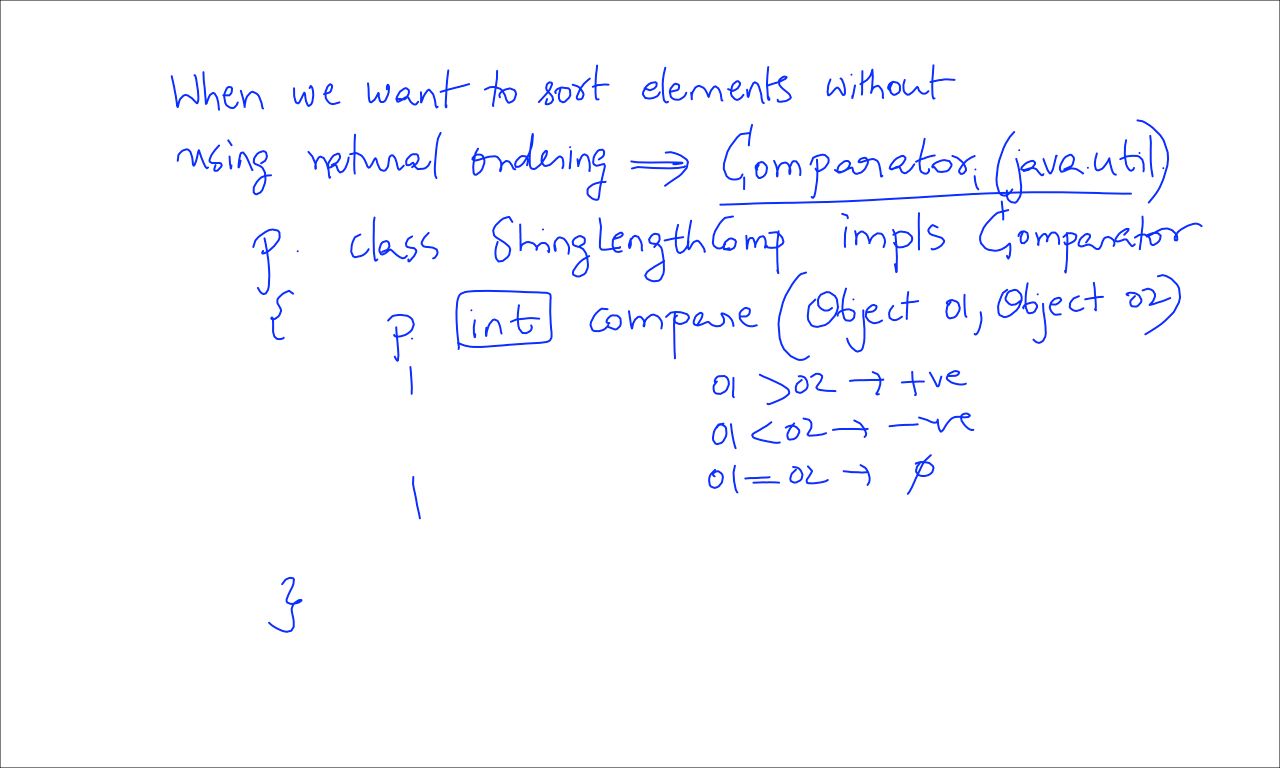 When we want to sort elements without
using natural ordering ⇒ Comparator (java.util)
p. class StringLengthComp impls Comparator
{ p. int compare (Object o1, Object o2)
| o1 > o2 → +ve
o1 < o2 → -ve
o1 = o2 → 0
|
}